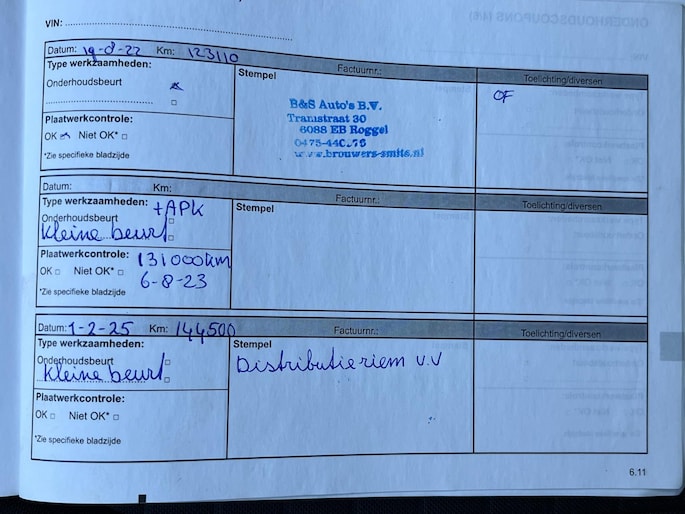 VIN:
Datum: 19-8-22 Km: 123110 Factuurnr.: Toelichting/diversen
Type werkzaamheden: Stempel
Onderhoudsbeurt OF
B&S Auto's B.V.
Tramstraat 30
6088 EB Roggel
Plaatwerkcontrole:
OK Niet OK*
www.brouwers-smits.nl
*Zie specifieke bladzijde
Datum: Km: Factuurnr.: Toelichting/diversen
Type werkzaamheden: +APK Stempel
Onderhoudsbeurt
Kleine beurt
Plaatwerkcontrole: 131000km
OK Niet OK* 6-8-23
*Zie specifieke bladzijde
Datum: 1-2-25 Km: 144500 Factuurnr.: Toelichting/diversen
Type werkzaamheden: Stempel
Onderhoudsbeurt
Kleine beurt
Distributieriem v.v
Plaatwerkcontrole:
OK Niet OK*
*Zie specifieke bladzijde
6.11